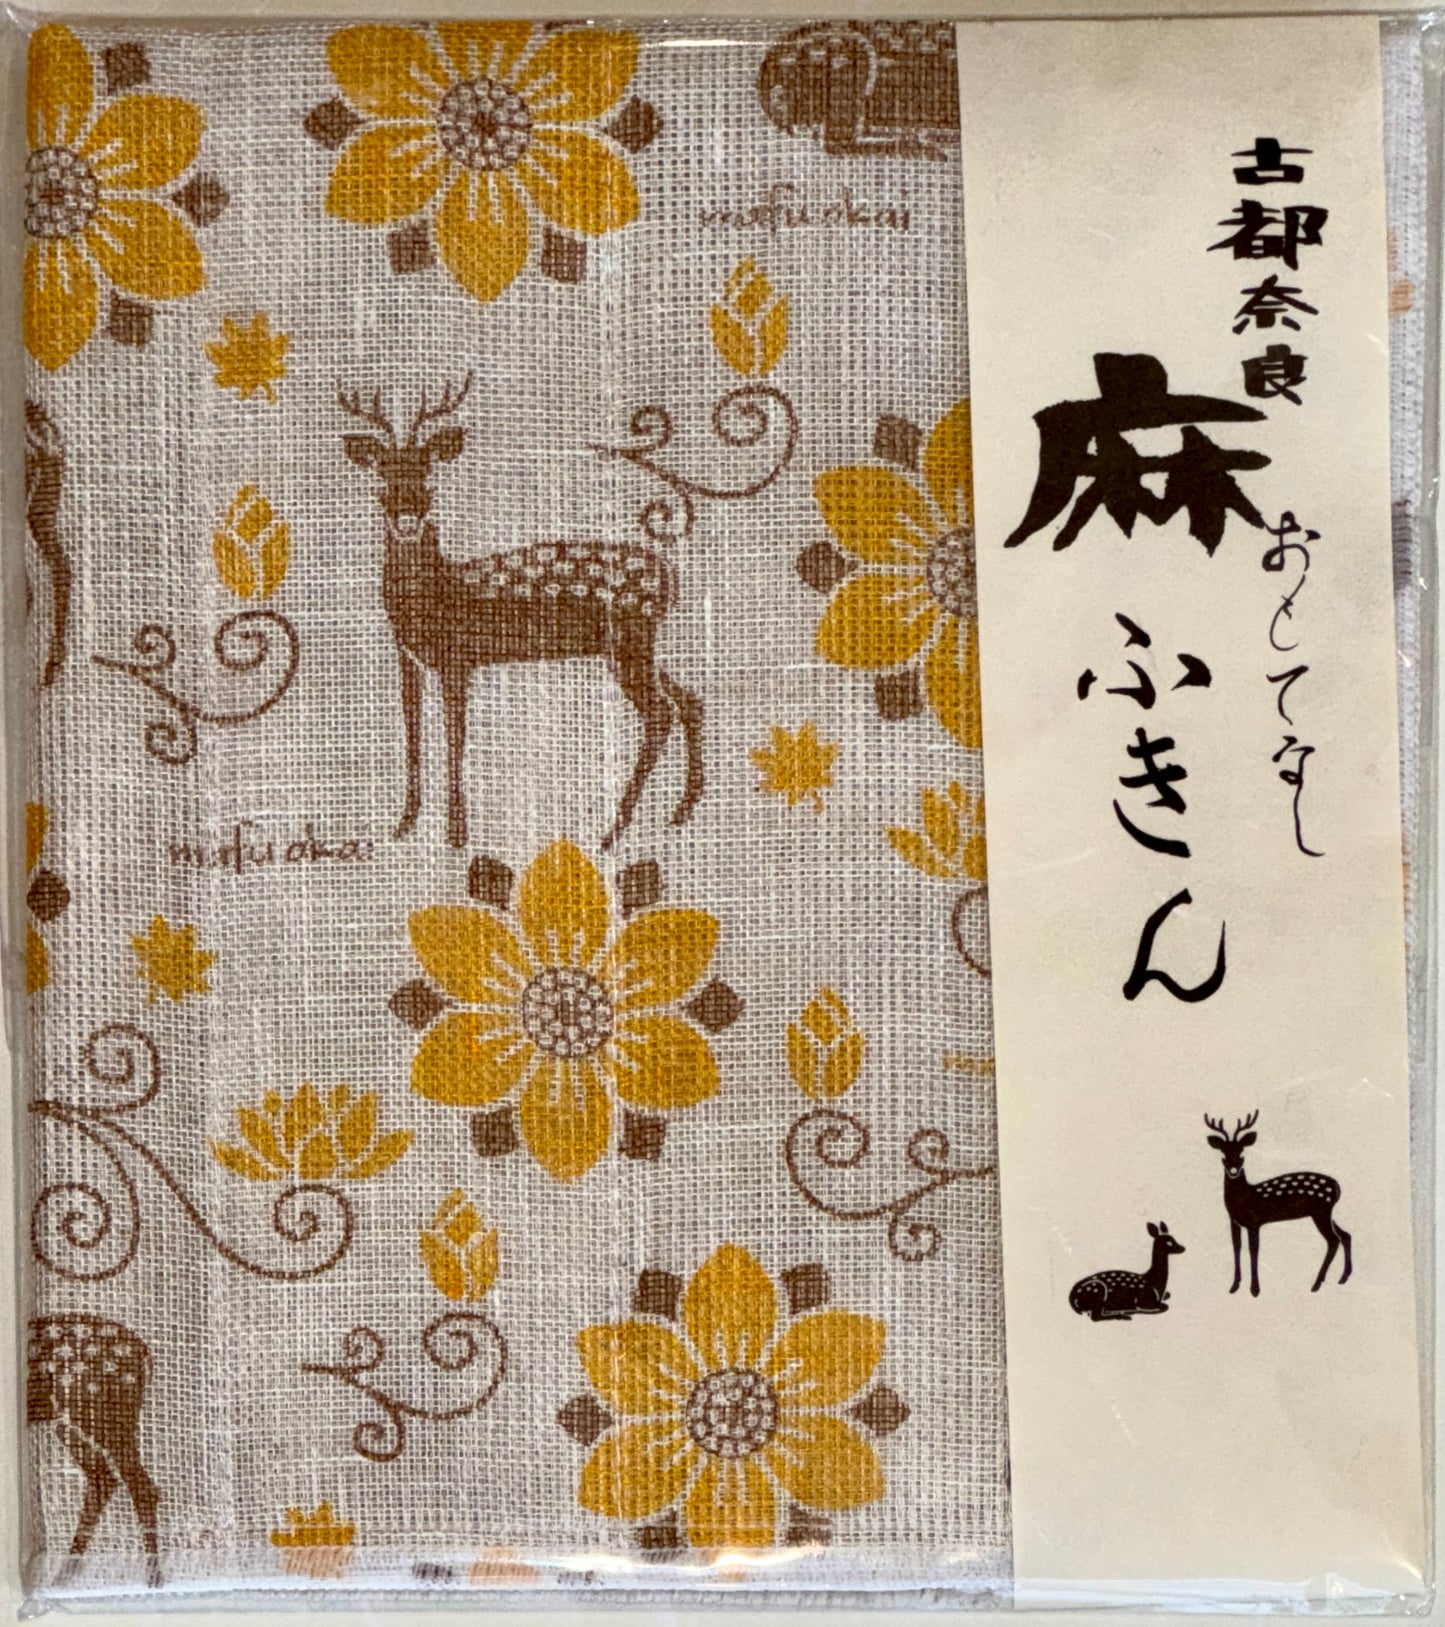 古都奈良
おもてなし
麻ふきん
mafu okai
mafu okai